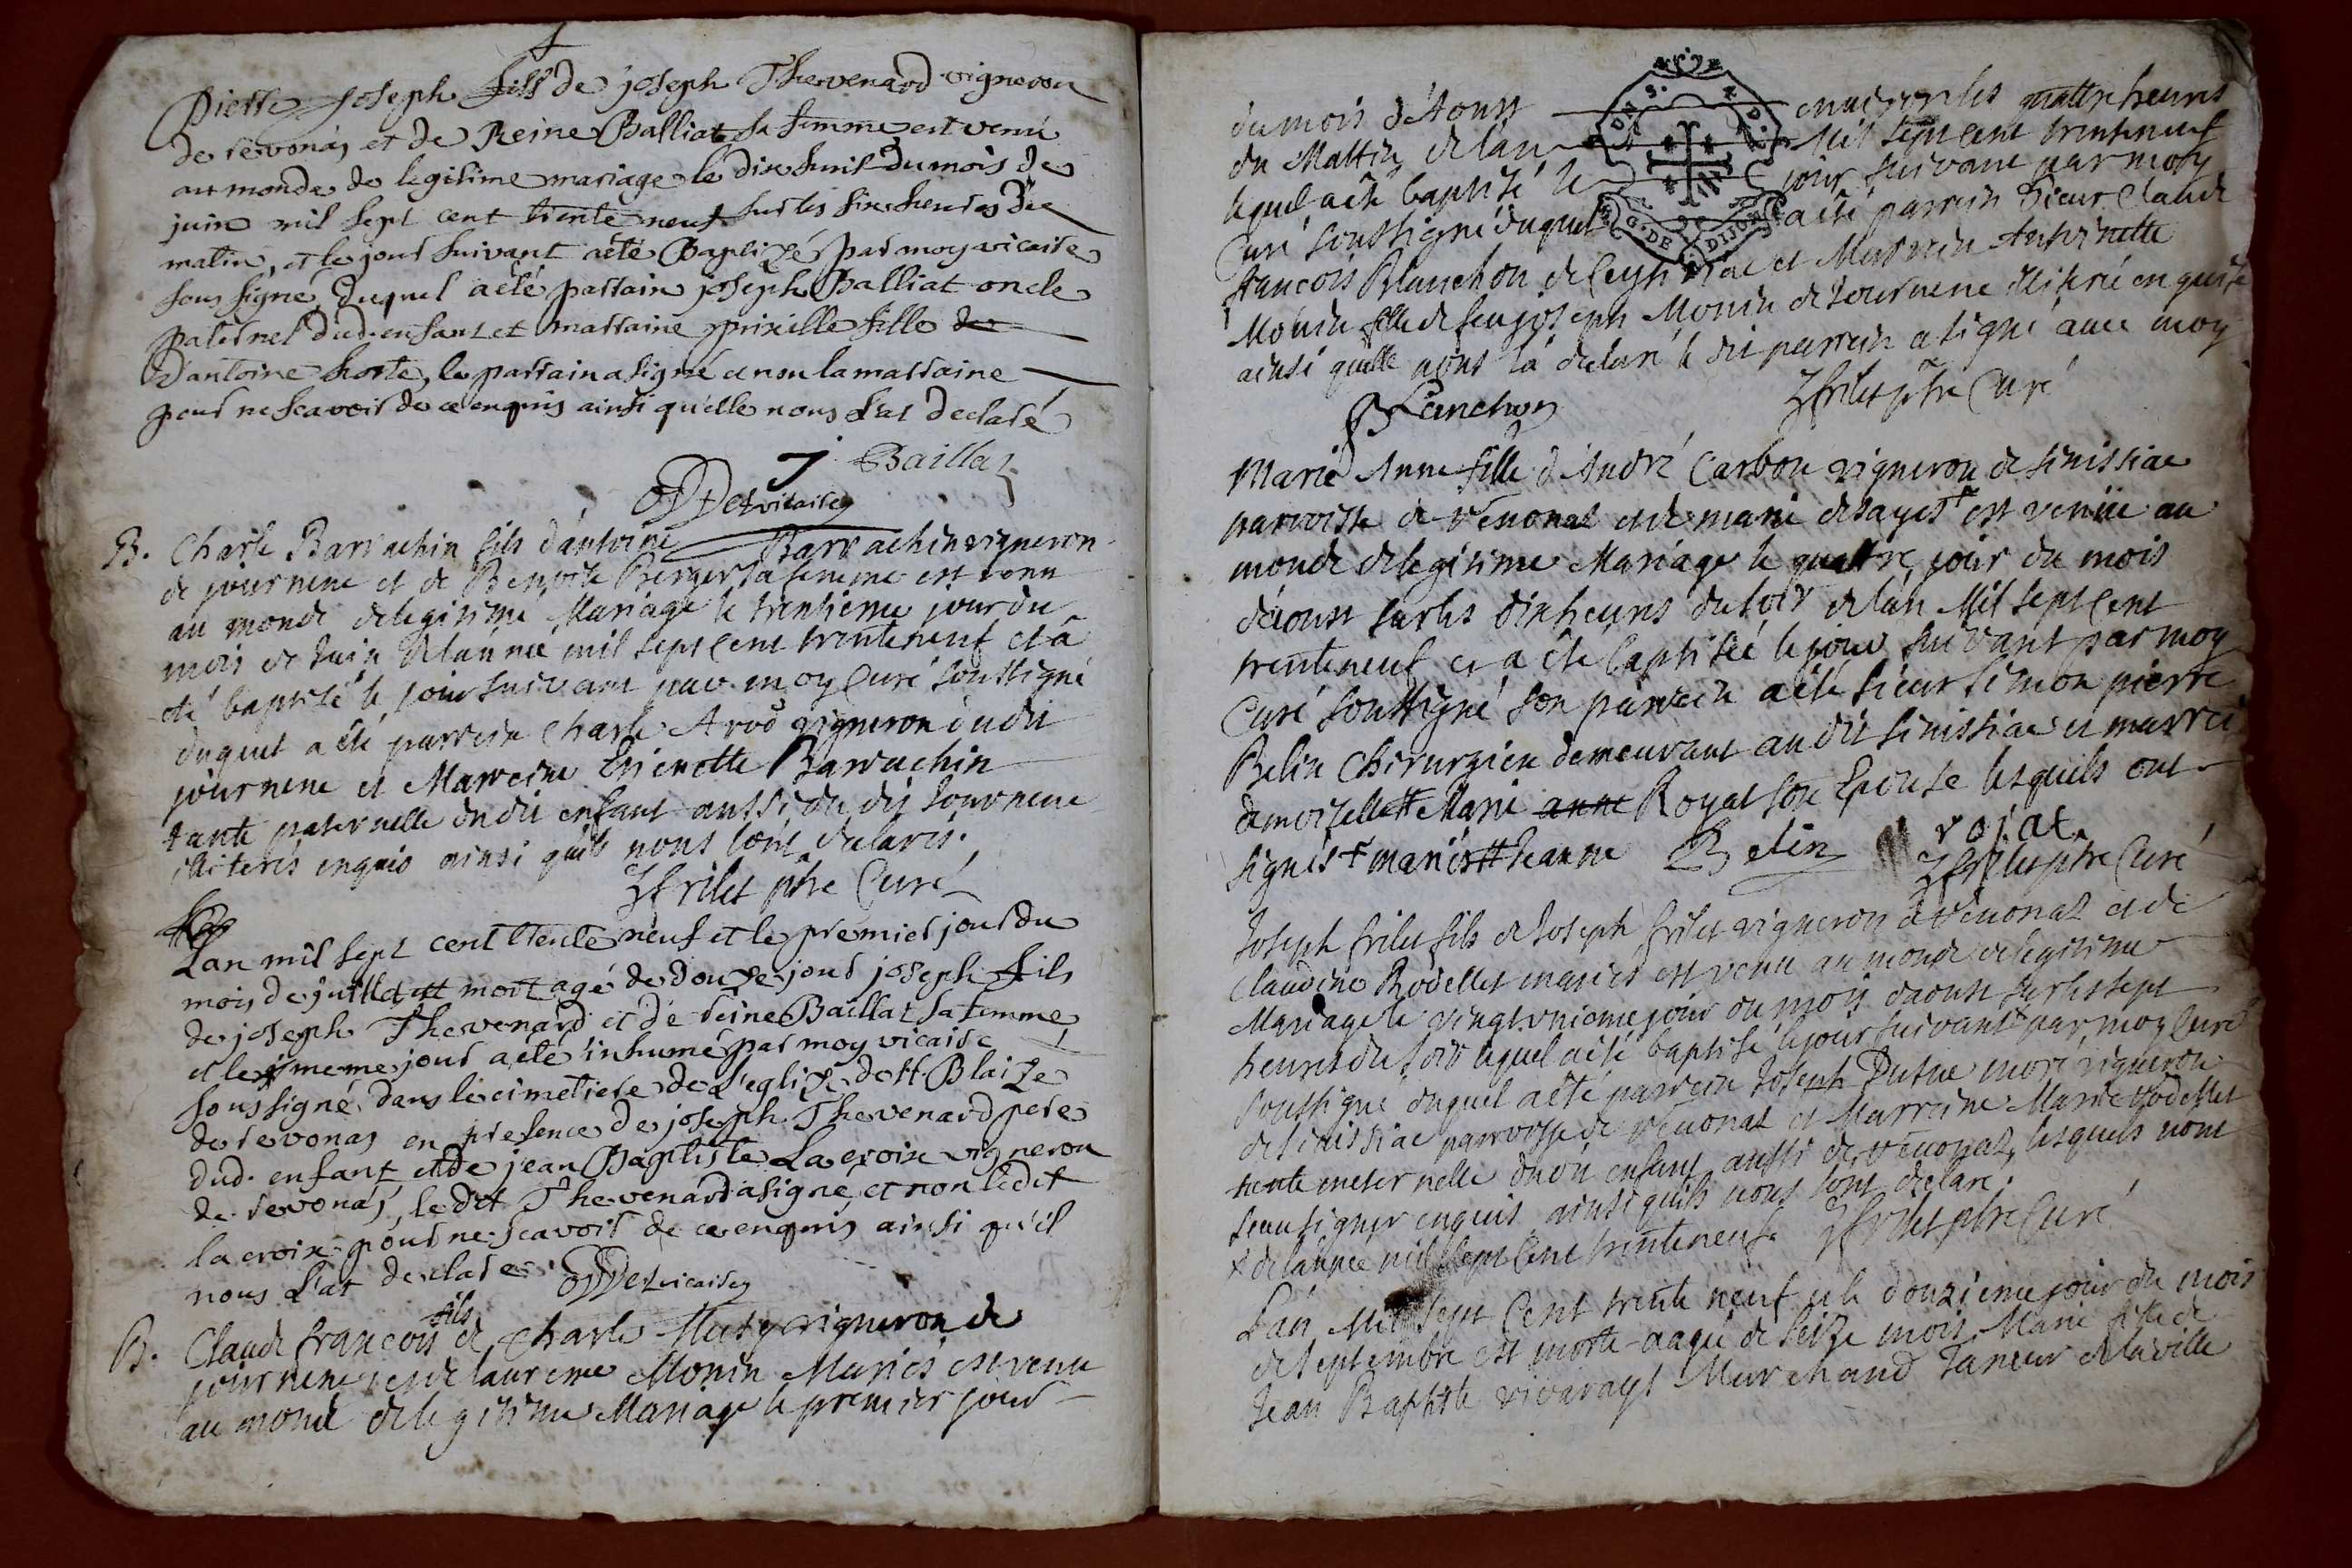 Pierre Joseph fils de joseph Thevenard vigneron
de revonas et de Reine Balliat sa femme est venu
au monde de legitime mariage le dix huit du mois de
juin mil sept cent trente neuf sur les six heures du
matin, et le jour suivant a eté Baptizé par moy vicaire
sous signé, duquel a eté parrain joseph Balliat oncle
paternel dud. enfant et marraine prixille fille de
D'antoine horte, le parrain a signé et non la marraine
pour ne scavoir de ce enquis ainsi qu'elle nous l'at declaré
J Baillat
vicaire
B. Charle Barrachin fils d'antoine Barrachin vigneron
de journene et de Benoite Berger sa femme est venu
au monde de legitime Mariage le trentieme jour du
mois de Juin de l'année mil sept cent trente neuf et a
été baptisé le jour suivant par moy Curé soussigné
duquel a été parrein Charle Arod vigneron dudit
journene et Marreine Etienette Barrachin
tante paternelle dudit enfant aussi du dit Journene
illiterés enquis ainsi quils nous l'ont declarés.
frilet ptre Curé
Lan mil sept cent trente neuf et le premier jour du
mois de juillet est mort agé de douze jour joseph fils
de joseph Thevenard et de reine Baillat sa femme
et le meme jour a eté inhumé par moy vicaire
sous signé, dans le cimetiere de L'eglize de st. Blaize
de revonas en presence de joseph Thevenard pere
dud. enfant et de jean Baptiste Lacroix vigneron
de revonas, le dit Thevenard a signé et non ledit
la croix pour ne scavoir de ce enquis ainsi qu'il
nous L'at declaré. vicaire
B. Claude francois fils de Charle vigneron de
journene et de laurence Monin Mariés est venu
au monde de legitime Mariage le premier jour
du mois d'Aoust sur les quattre heures
du Mattin de l'an Mil sept cent trente neuf
lequel a été baptisé le jour suivant par moy
Curé soussigné duquel a été parrein Sieur Claude
G. DE DIJON
francois Blanchon de Ceyseriac et Marrein Anthoinette
Monin fille de feu joseph Monin de Journene illitéré enquise
ainsi quelle nous la declaré le dit parrein a signé avec moy
Blanchon frilet ptre Curé
Marie Anne fille d'André Carbon vigneron de sinissiac
parroisse de revonas et de marie desayes + est venüe au
monde de legitime Mariage le quattre jour du mois
d'aoust sur les dix heures du soir de lan Mil sept Cent
trente neuf et a été baptisée le jour suivant par moy
Curé soussigné son parrein a été sieur simon pierre
Belin Chirurgien demeurant au dit sinissiac et marrei
demoiselle # Marie anne Royat son Epouse lesquels ont
signés + mariés # Jeanne Belin rojat
frilet ptre Curé
Joseph frilet fils de Joseph frilet vigneron a revonas et de
Claudine Rodellet mariés est venu au monde de legitime
Mariage le vingt unieme jour du mois d'aoust sur les sept
heures du soir lequel a été baptisé le jour suivant + par moy Curé
soussigné duquel a été parrein Joseph vigneron
de sinissiac parroisse de revonas et Marreine Marie Rodellet
tente maternelle du dit enfant aussi de revonas, lesquels nont
sceu signer enquis ainsi quils nous l'ont declaré.
+ de lannée mil sept Cent trente neuf. frilet ptre Curé
L'an Mil sept Cent trente neuf et le douzieme jour du mois
de septembre est morte aagé de seize mois Marie fille de
Jean Baptiste Marchand Taneur de la ville